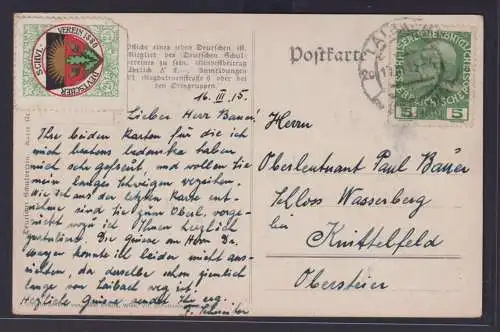 SCHUL VEREIN 1880
DEUTSCHER
Pflicht eines jeden Deutschen ist,
Mitglied des Deutschen Schul-
vereins zu sein. Mindestbeitrag
jährlich K Anmeldungen
VIII Magdalenenstraße 6 oder bei
den Ortsgruppen.
Postkarte
LAIBACH
5 5
16. III. 15.
Lieber Herr Bauer!
Ihre beiden Karten für die ich
mich bestens bedanke haben
mich sehr gefreut, und wollen Sie
mein langes Schweigen verzeihen.
Wie ich aus der letzten Karte ent-
nehme sind Sie zum Oberl. vorge-
rückt wozu ich Ihnen herzlich
gratuliere. Die Grüsse an Herrn Dr.
konnte ich leider nicht aus-
richten, da derselbe schon ziemlich
lange von Laibach weg ist.
Herzliche Grüsse sendet Ihr erg.
Herrn
Oberleutnant Paul Bauer
Schloss Wasserberg
bei
Knittelfeld
Obersteier